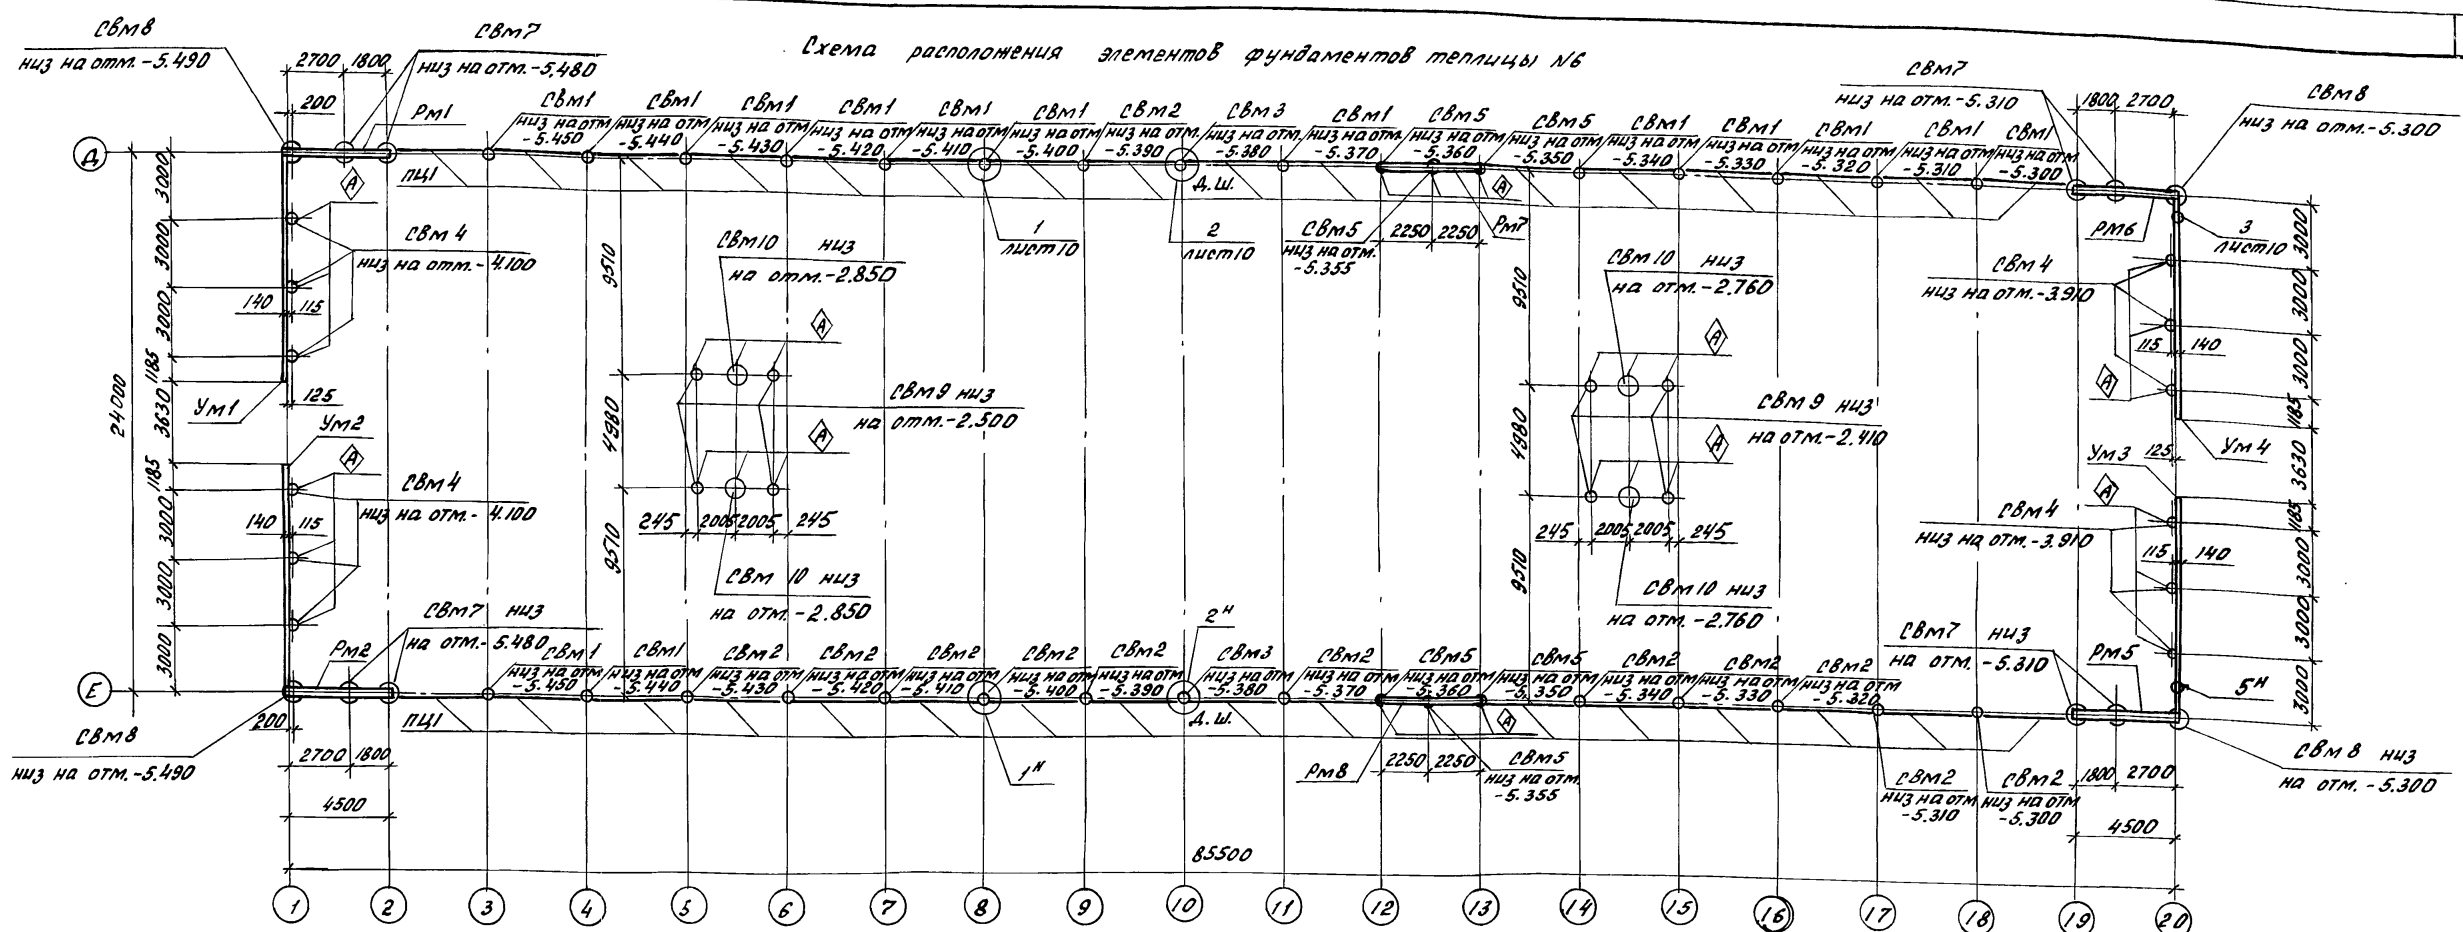 Схема расположения элементов фундаментов теплицы №6
СВм8
низ на отм.-5.490
СВм7
низ на отм.-5.480
2700 1800
200
Рм1
СВм1
низ на отм
-5.450
СВм1
низ на отм
-5.440
СВм1
низ на отм
-5.430
СВм1
низ на отм
-5.420
СВм1
низ на отм
-5.410
СВм1
низ на отм
-5.400
СВм2
низ на отм.
-5.390
СВм3
низ на отм
-5.380
СВм1
низ на отм.
-5.370
СВм5
низ на отм
-5.360
СВм5
низ на отм
-5.350
СВм1
низ на отм
-5.340
СВм1
низ на отм
-5.330
СВм1
низ на отм
-5.320
СВм1
низ на отм
-5.310
СВм1
низ на отм
-5.300
СВм7
низ на отм.-5.310
1800 2700
СВм8
низ на отм.-5.300
Д
ПЦ1
А
Д.Ш.
А
1
лист10
2
лист10
СВм5
низ на отм.
-5.355
2250 2250
Рм7
Рм6
3
лист10
3000
3000
3000
1185
3630
1185
3000
3000
3000
24000
СВм4
низ на отм.-4.100
140 115
Ум1
125
Ум2
А
СВм4
низ на отм.-4.100
140 115
9510
4980
9510
СВм10 низ
на отм.-2.850
А
СВм9 низ
на отм.-2.500
А
245 2005 2005 245
СВм 10 низ
на отм.-2.850
9510
4980
9510
СВм10 низ
на отм.-2.760
А
СВм9 низ
на отм.-2.410
А
245 2005 2005 245
СВм10 низ
на отм.-2.760
СВм4
низ на отм.-3.910
115 140
А
Ум3
125
Ум4
А
СВм4
низ на отм.-3.910
115 140
3000
3000
3000
1185
3630
1185
3000
3000
3000
СВм7 низ
на отм.-5.480
Рм2
СВм1
низ на отм
-5.450
СВм1
низ на отм
-5.440
СВм2
низ на отм
-5.430
СВм2
низ на отм
-5.420
СВм2
низ на отм
-5.410
СВм2
низ на отм
-5.400
СВм2
низ на отм
-5.390
2н
СВм3
низ на отм
-5.380
СВм2
низ на отм
-5.370
СВм5
низ на отм
-5.360
СВм5
низ на отм
-5.350
СВм2
низ на отм
-5.340
СВм2
низ на отм
-5.330
СВм2
низ на отм
-5.320
СВм7 низ
на отм.-5.310
Рм5
5н
Е
200
ПЦ1
Д.Ш.
А
СВм8
низ на отм.-5.490
2700 1800
4500
1н
Рм8
2250 2250
СВм5
низ на отм.
-5.355
СВм2
низ на отм
-5.310
СВм2
низ на отм
-5.300
1800 2700
4500
СВм8 низ
на отм.-5.300
85500
1 2 3 4 5 6 7 8 9 10 11 12 13 14 15 16 17 18 19 20